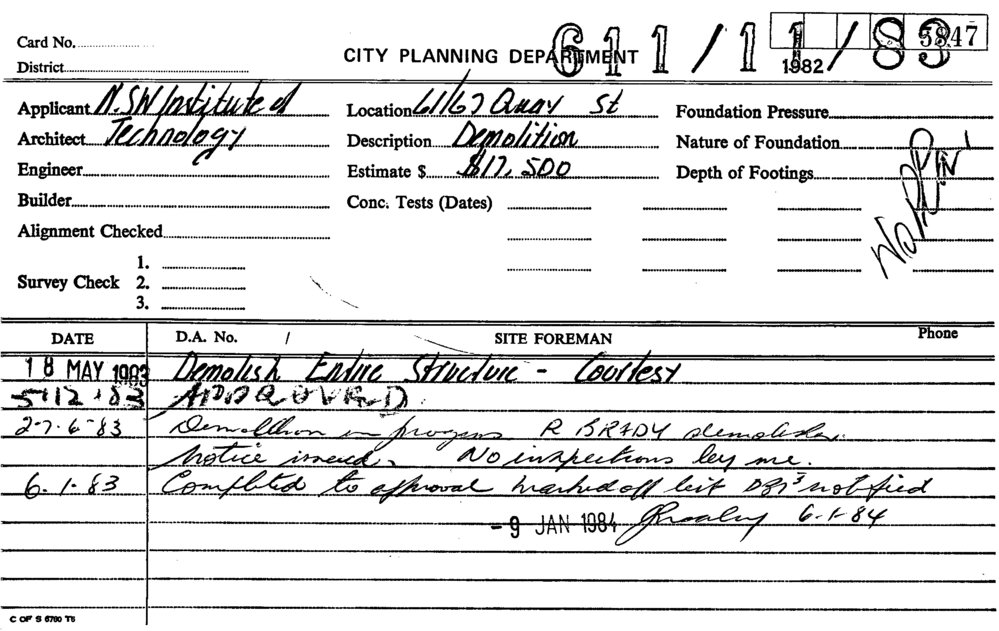 Card No.
District
CITY PLANNING DEPARTMENT
611/11/83
1982
5847
Applicant N.SW Institute of
Architect Technology
Engineer
Builder
Alignment Checked
Survey Check 1.
2.
3.
Location 61/67 Quay St
Description Demolition
Estimate $ $17,500
Conc. Tests (Dates)
Foundation Pressure
Nature of Foundation
Depth of Footings
No
DATE D.A. No. / SITE FOREMAN Phone
18 MAY 1983 Demolish Entire Structure - Courtesy
5.12.83 APPROVED
27.6.83 Demolition in progress R BRADY demolisher.
Notice issued. No inspections by me.
6.1.83 Completed to approval marked off list notified
- 9 JAN 1984 6-1-84
C OF S 6760 T6